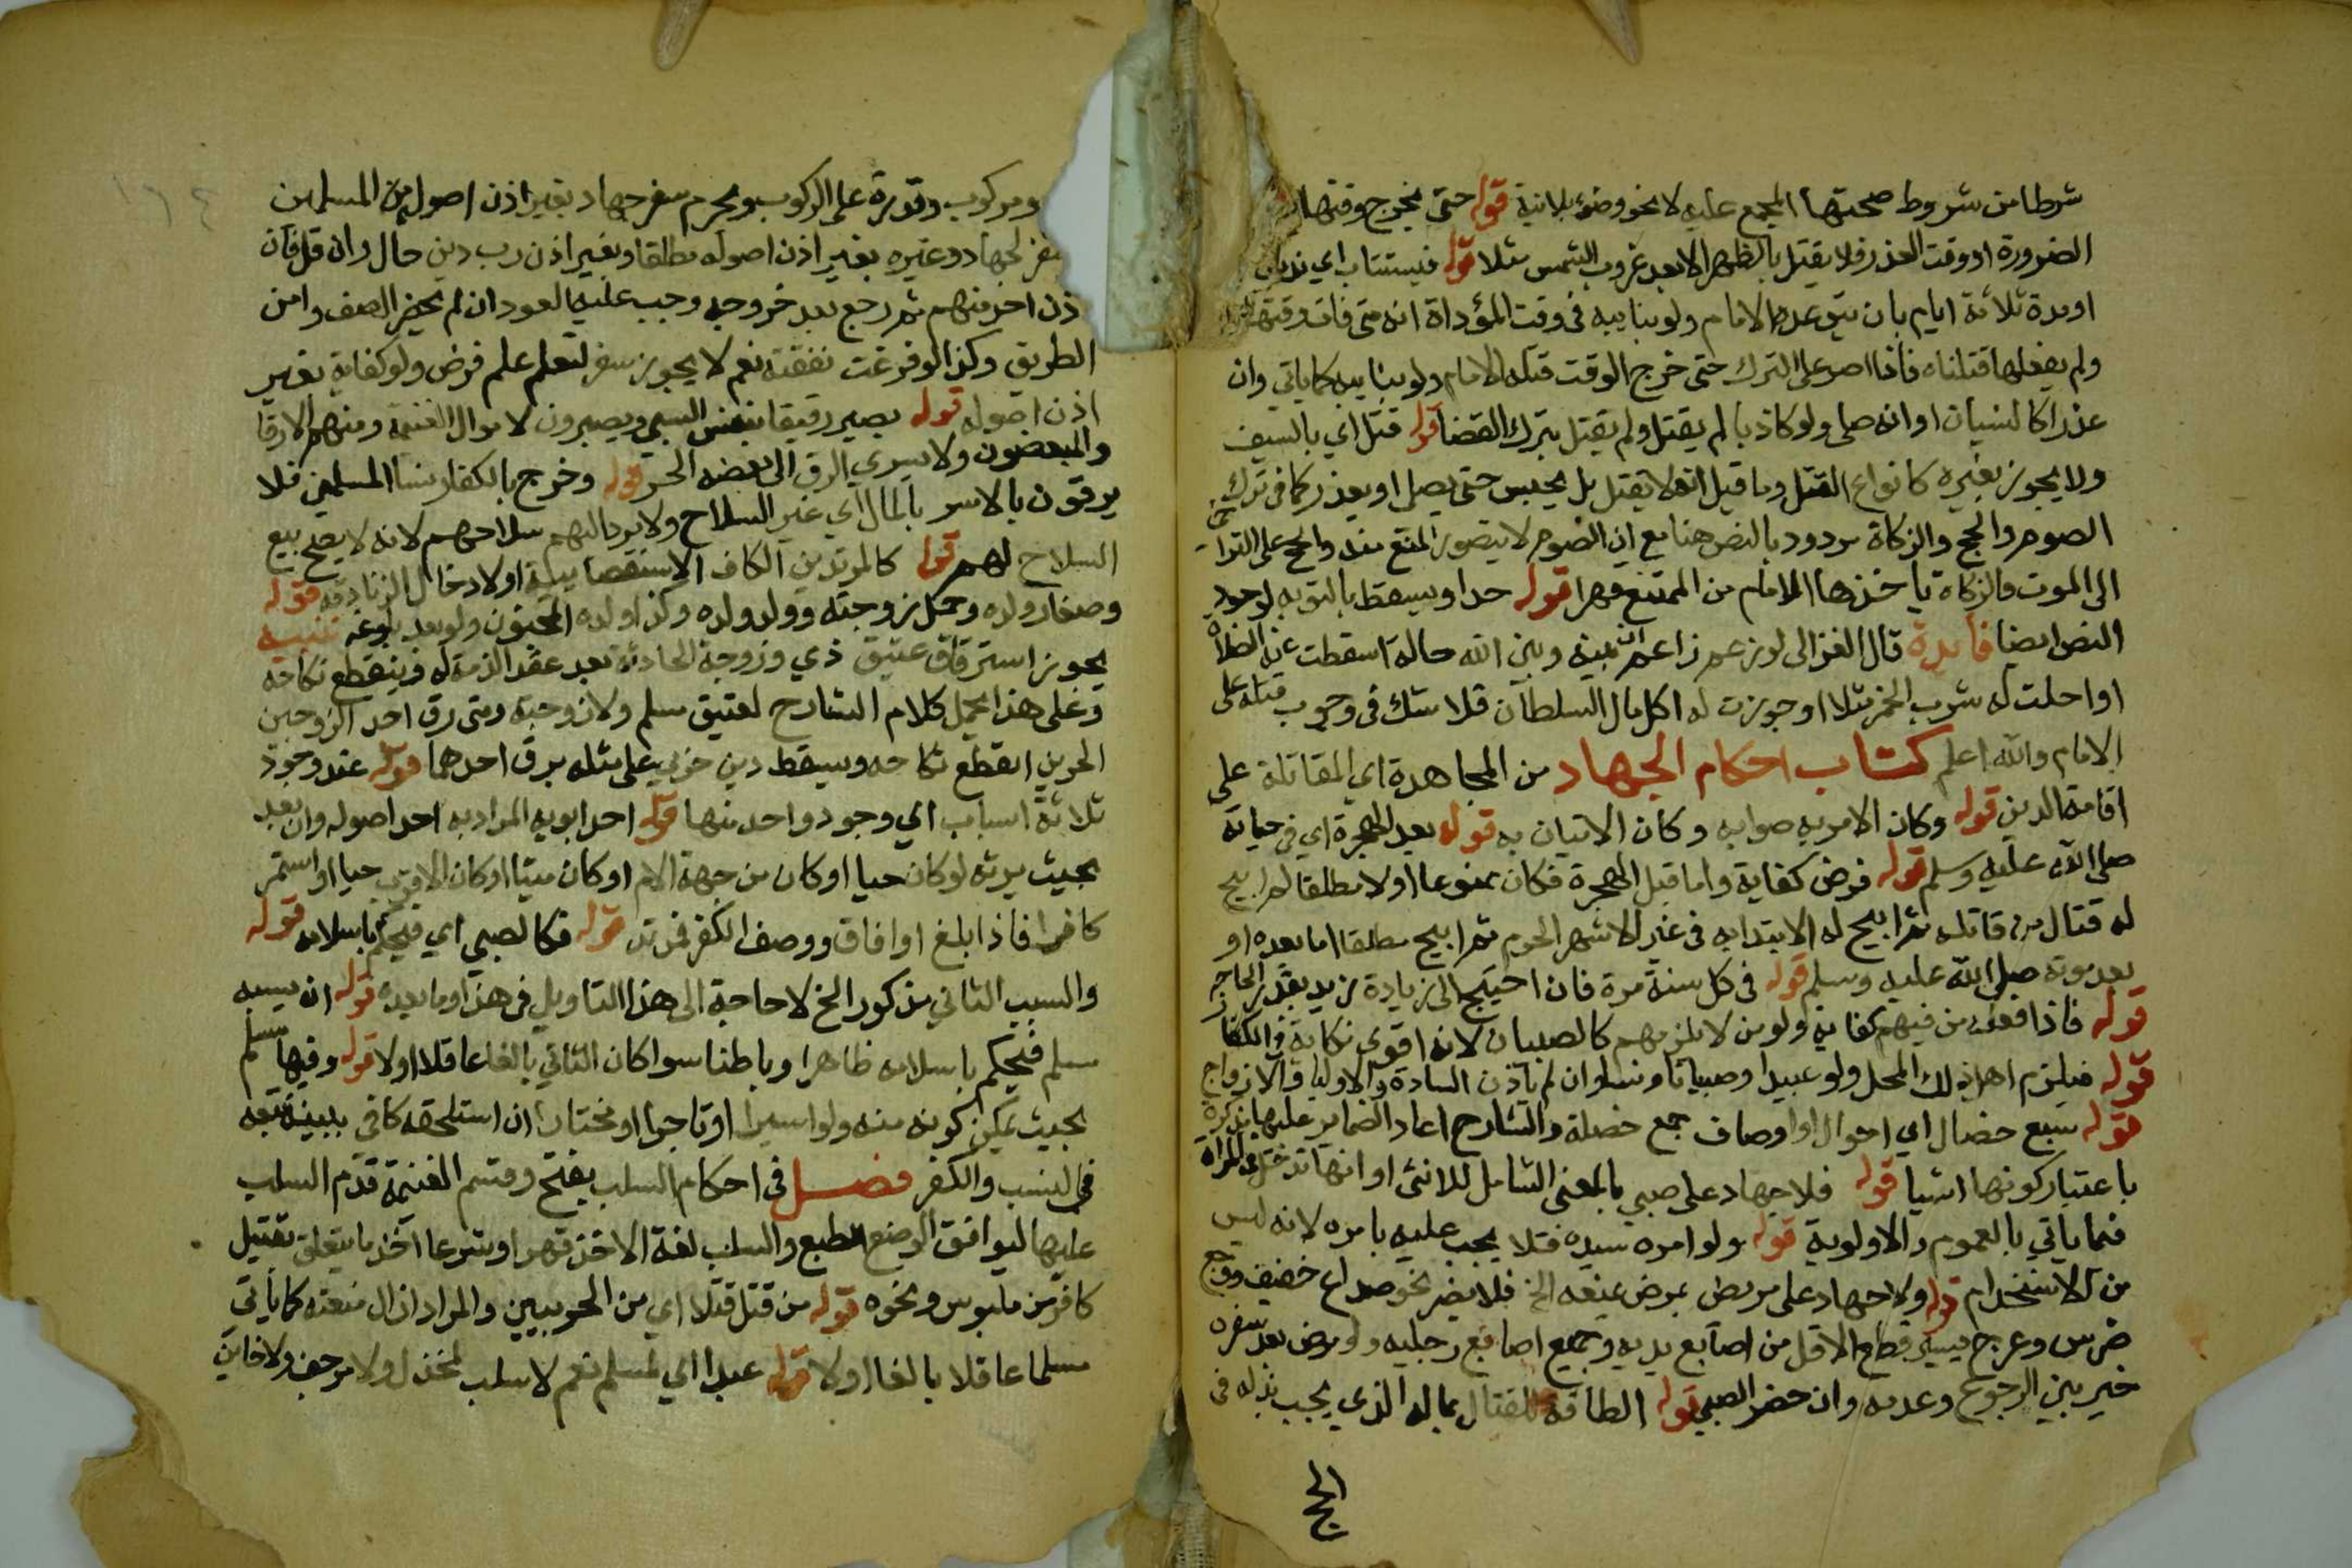 شرطا من شروط صحتها المجمع عليه لا نحو وضوء بلا نية قوله حتى يخرج وقتها
الضرورة او وقت العذر فلا يقتل بالظهر الا بعد غروب الشمس مثلا قوله فيستتاب اي ندبا
او مدة ثلاثة ايام بان يتوعده الامام ولو بنايبه في وقت المؤداة انه متى فات وقتها
ولم يفعلها قتلناه فاذا اصر على الترك حتى خرج الوقت قتله الامام ولو بنايبه كما ياتي وان
عذرا كالنسيان او انه صلى ولو كاذبا لم يقتل ولم يقتل بترك القضا قوله قتل اي بالسيف
ولا يجوز بغيره كانواع القتل وما قيل انه لا يقتل بل يحبس حتى يصلي او يعذر كما في ترك
الصوم والحج والزكاة مردود بالنص هنا مع ان الصوم لا يتصور المنع منه والحج على التراخي
الى الموت والزكاة ياخذها الامام من الممتنع قهرا قوله حدا ويسقط بالتوبه لوجود
النص ايضا فايدة قال الغزالي لو زعم زاعم ان بينه وبين الله حالة اسقطت عنه الصلاة
او احلت له شرب الخمر مثلا او جوزت له اكل مال السلطان فلا شك في وجوب قتله على
الامام والله اعلم كتاب احكام الجهاد من المجاهدة اي المقاتلة على
اقامة الدين قوله وكان الامر به صوابه وكان الاتيان به قوله بعد الهجرة اي في حياته
صلى الله عليه وسلم قوله فرض كفاية واما قبل الهجرة فكان ممنوعا اولا مطلقا ثم ابيح
له قتال من قاتله ثم ابيح له الابتدا به في غير الاشهر الحرم ثم ابيح مطلقا اما بعده او
بعد موته صلى الله عليه وسلم قوله في كل سنة مرة فان احتيج الى زيادة زيد بقدر الحاجة
قوله فاذا فعله من فيهم كفاية ولو من لا يلزمهم كالصبيان لانه اقوى نكاية في الكفار
قوله فيلزم اهل ذلك المحل ولو عبيدا وصبيانا ونسا وان لم ياذن السادة والاوليا والازواج
قوله سبع خصال اي احوال او اوصاف جمع خصلة والشارح اعاد الضماير عليها مذكرة
باعتبار كونها اشيا قوله فلا جهاد على صبي بالمعنى الشامل للانثى او انها تدخل في المراة
فيما ياتي بالعموم والاولوية قوله ولو امره سيده فلا يجب عليه بامره لانه ليس
من الاستخدام قوله ولا جهاد على مريض بمرض يمنعه الخ فلا يضر نحو صداع خفيف ووجع
ضرس وعرج يسير وقطع الاقل من اصابع يديه وجميع اصابع رجليه ولو مرض بعد سفره
خير بين الرجوع وعدمه وان حضر الصبي قوله الطاقة للقتال بماله الذي يجب بذله في
الحج
ومركوب وقدرة على الركوب ويحرم سفر جهاد بغير اذن اصوله من المسلمين
لجهاد وغيره بغير اذن اصوله مطلقا وبغير اذن رب دين حال وان قل فان
اذن احد منهم ثم رجع بعد خروجه وجب عليه العود ان لم يحضر الصف وامن
الطريق وكذا لو فرغت نفقته نعم لا يجوز سفر لتعلم علم فرض ولو كفاية بغير
اذن اصوله قوله يصير رقيقا بنفس السبي ويصيرون لاموال الغنيمة ومنهم الارقا
والمبعضون ولا يسري الرق الى بعضه الحر قوله وخرج بالكفار نسا المسلمين فلا
يرقون بالاسر بالمال اي غير السلاح ولا يرد اليهم سلاحهم لانه لا يصح بيع
السلاح لهم قوله كالمرتدين الكاف الاستقصايية او لادخال الزنادقة قوله
وصغار ولده وحمل زوجته وولد ولده وكذا ولده المجنون ولو بعد بلوغه تنبيه
يجوز استرقاق عتيق ذمي وزوجة الحادثة بعد عقد الذمة له وينقطع نكاحه
وعلى هذا يحمل كلام الشارح لعتيق مسلم ولا زوجته ومتى رق احد الزوجين
الحرين انقطع نكاحه ويسقط دين حربي على مثله برق احدهما قوله عند وجود
ثلاثة اسباب اي وجود واحد منها قوله احد ابويه المراد به احد اصوله وان بعد
بحيث يرثه لو كان حيا او كان من جهة الام او كان ميتا او كان الاقرب حيا او استمر
كافرا فاذا بلغ او افاق ووصف الكفر فمرتد قوله فكالصبي اي فيحكم باسلامه قوله
والسبب الثاني مذكور الخ لا حاجة الى هذا التاويل في هذا وما بعده قوله ان يسبيه
مسلم فيحكم باسلامه ظاهرا وباطنا سوا كان الثاني بالغا عاقلا اولا قوله وفيها مسلم
بحيث يمكن كونه منه ولو اسيرا او تاجرا او مختارا ان استلحقه كافر ببينة تبعه
في النسب والكفر فصل في احكام السلب بفتح وقسم الغنيمة قدم السلب
عليها ليوافق الوضع الطبع والسلب لغة الاخذ قهرا وشرعا اخذ ما يتعلق بقتيل
كافر من ملبوس ونحوه قوله من قتل قتلا اي من الحربيين والمراد ازال منعته كما ياتي
مسلما عاقلا بالغا اولا قوله عبدا اي لمسلم نعم لا سلب لمخذل ولا مرجف ولا خاين